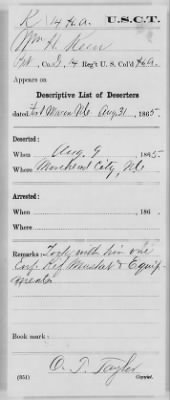 K 14 H.a. U.S.C.T.
Wm H. Keen
Pvt, Co. I, 14 Reg't U. S. Col'd H.a.
Appears on
Descriptive List of Deserters
dated Fort Macon N.C. Aug 31, 1865.
Deserted:
When Aug. 9, 1865
Where Morehead City, N.C.
Arrested:
When , 186 .
Where
Remarks: Took with him one
Enf. Rif Musket & Equip-
ments
Book mark:
O. T. Taylor
(351) Copyist.